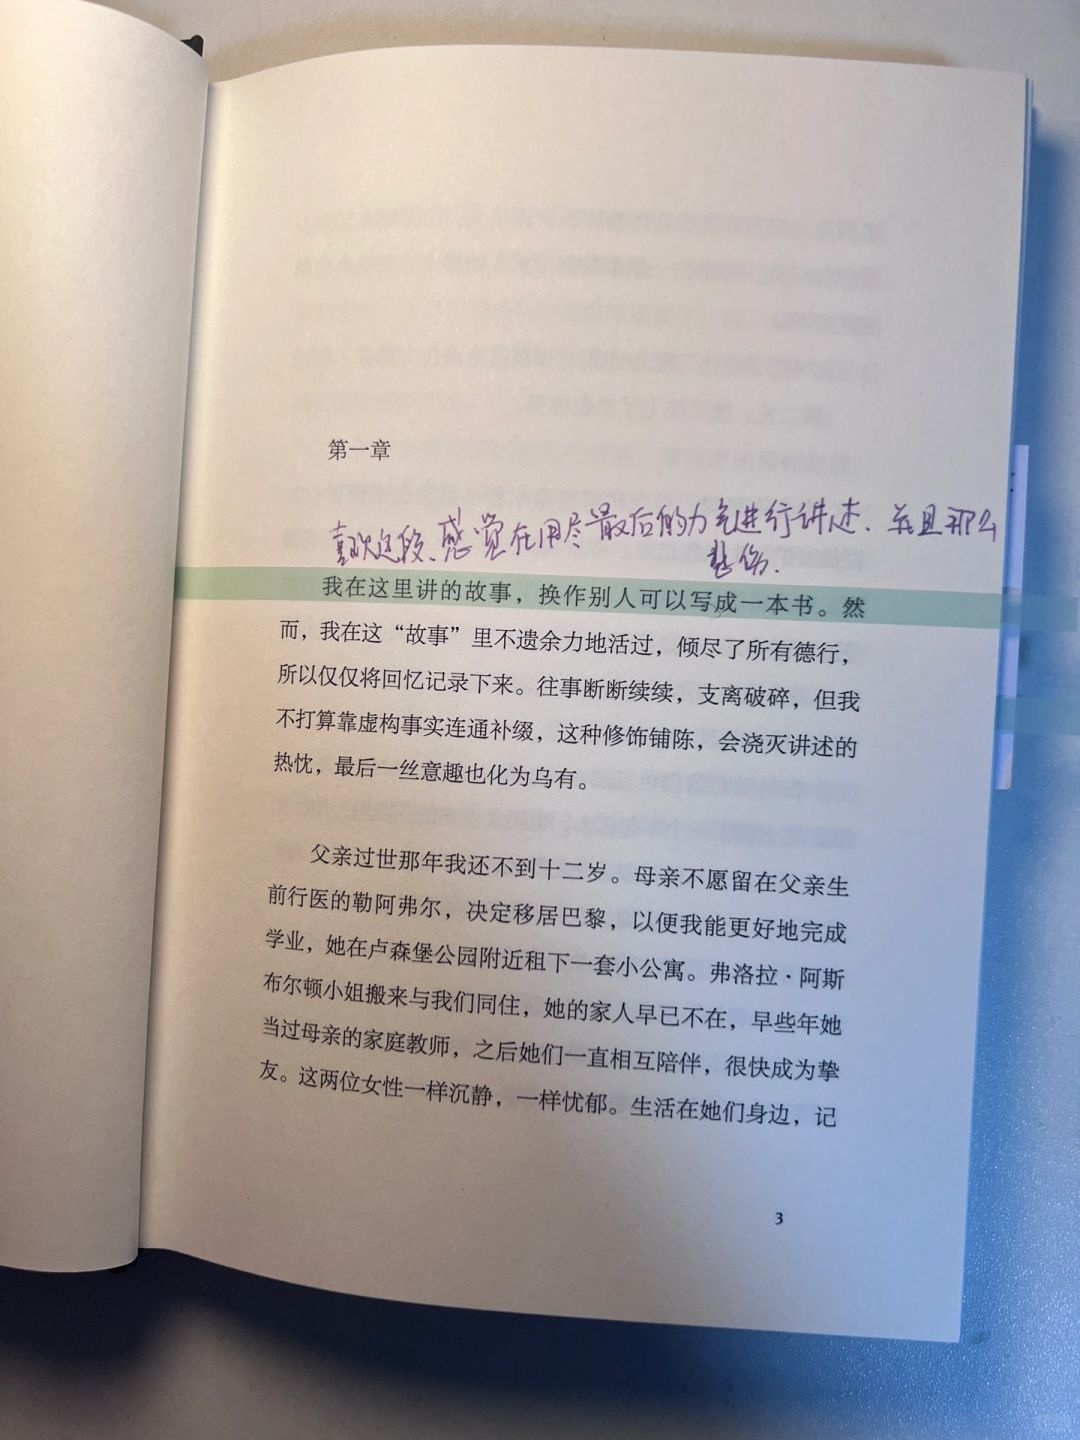 第一章
喜欢这段、感觉在用尽最后的力气进行讲述、并且那么
悲伤.
我在这里讲的故事，换作别人可以写成一本书。然
而，我在这“故事”里不遗余力地活过，倾尽了所有德行，
所以仅仅将回忆记录下来。往事断断续续，支离破碎，但我
不打算靠虚构事实连通补缀，这种修饰铺陈，会浇灭讲述的
热忱，最后一丝意趣也化为乌有。
父亲过世那年我还不到十二岁。母亲不愿留在父亲生
前行医的勒阿弗尔，决定移居巴黎，以便我能更好地完成
学业，她在卢森堡公园附近租下一套小公寓。弗洛拉·阿斯
布尔顿小姐搬来与我们同住，她的家人早已不在，早些年她
当过母亲的家庭教师，之后她们一直相互陪伴，很快成为挚
友。这两位女性一样沉静，一样忧郁。生活在她们身边，记
3